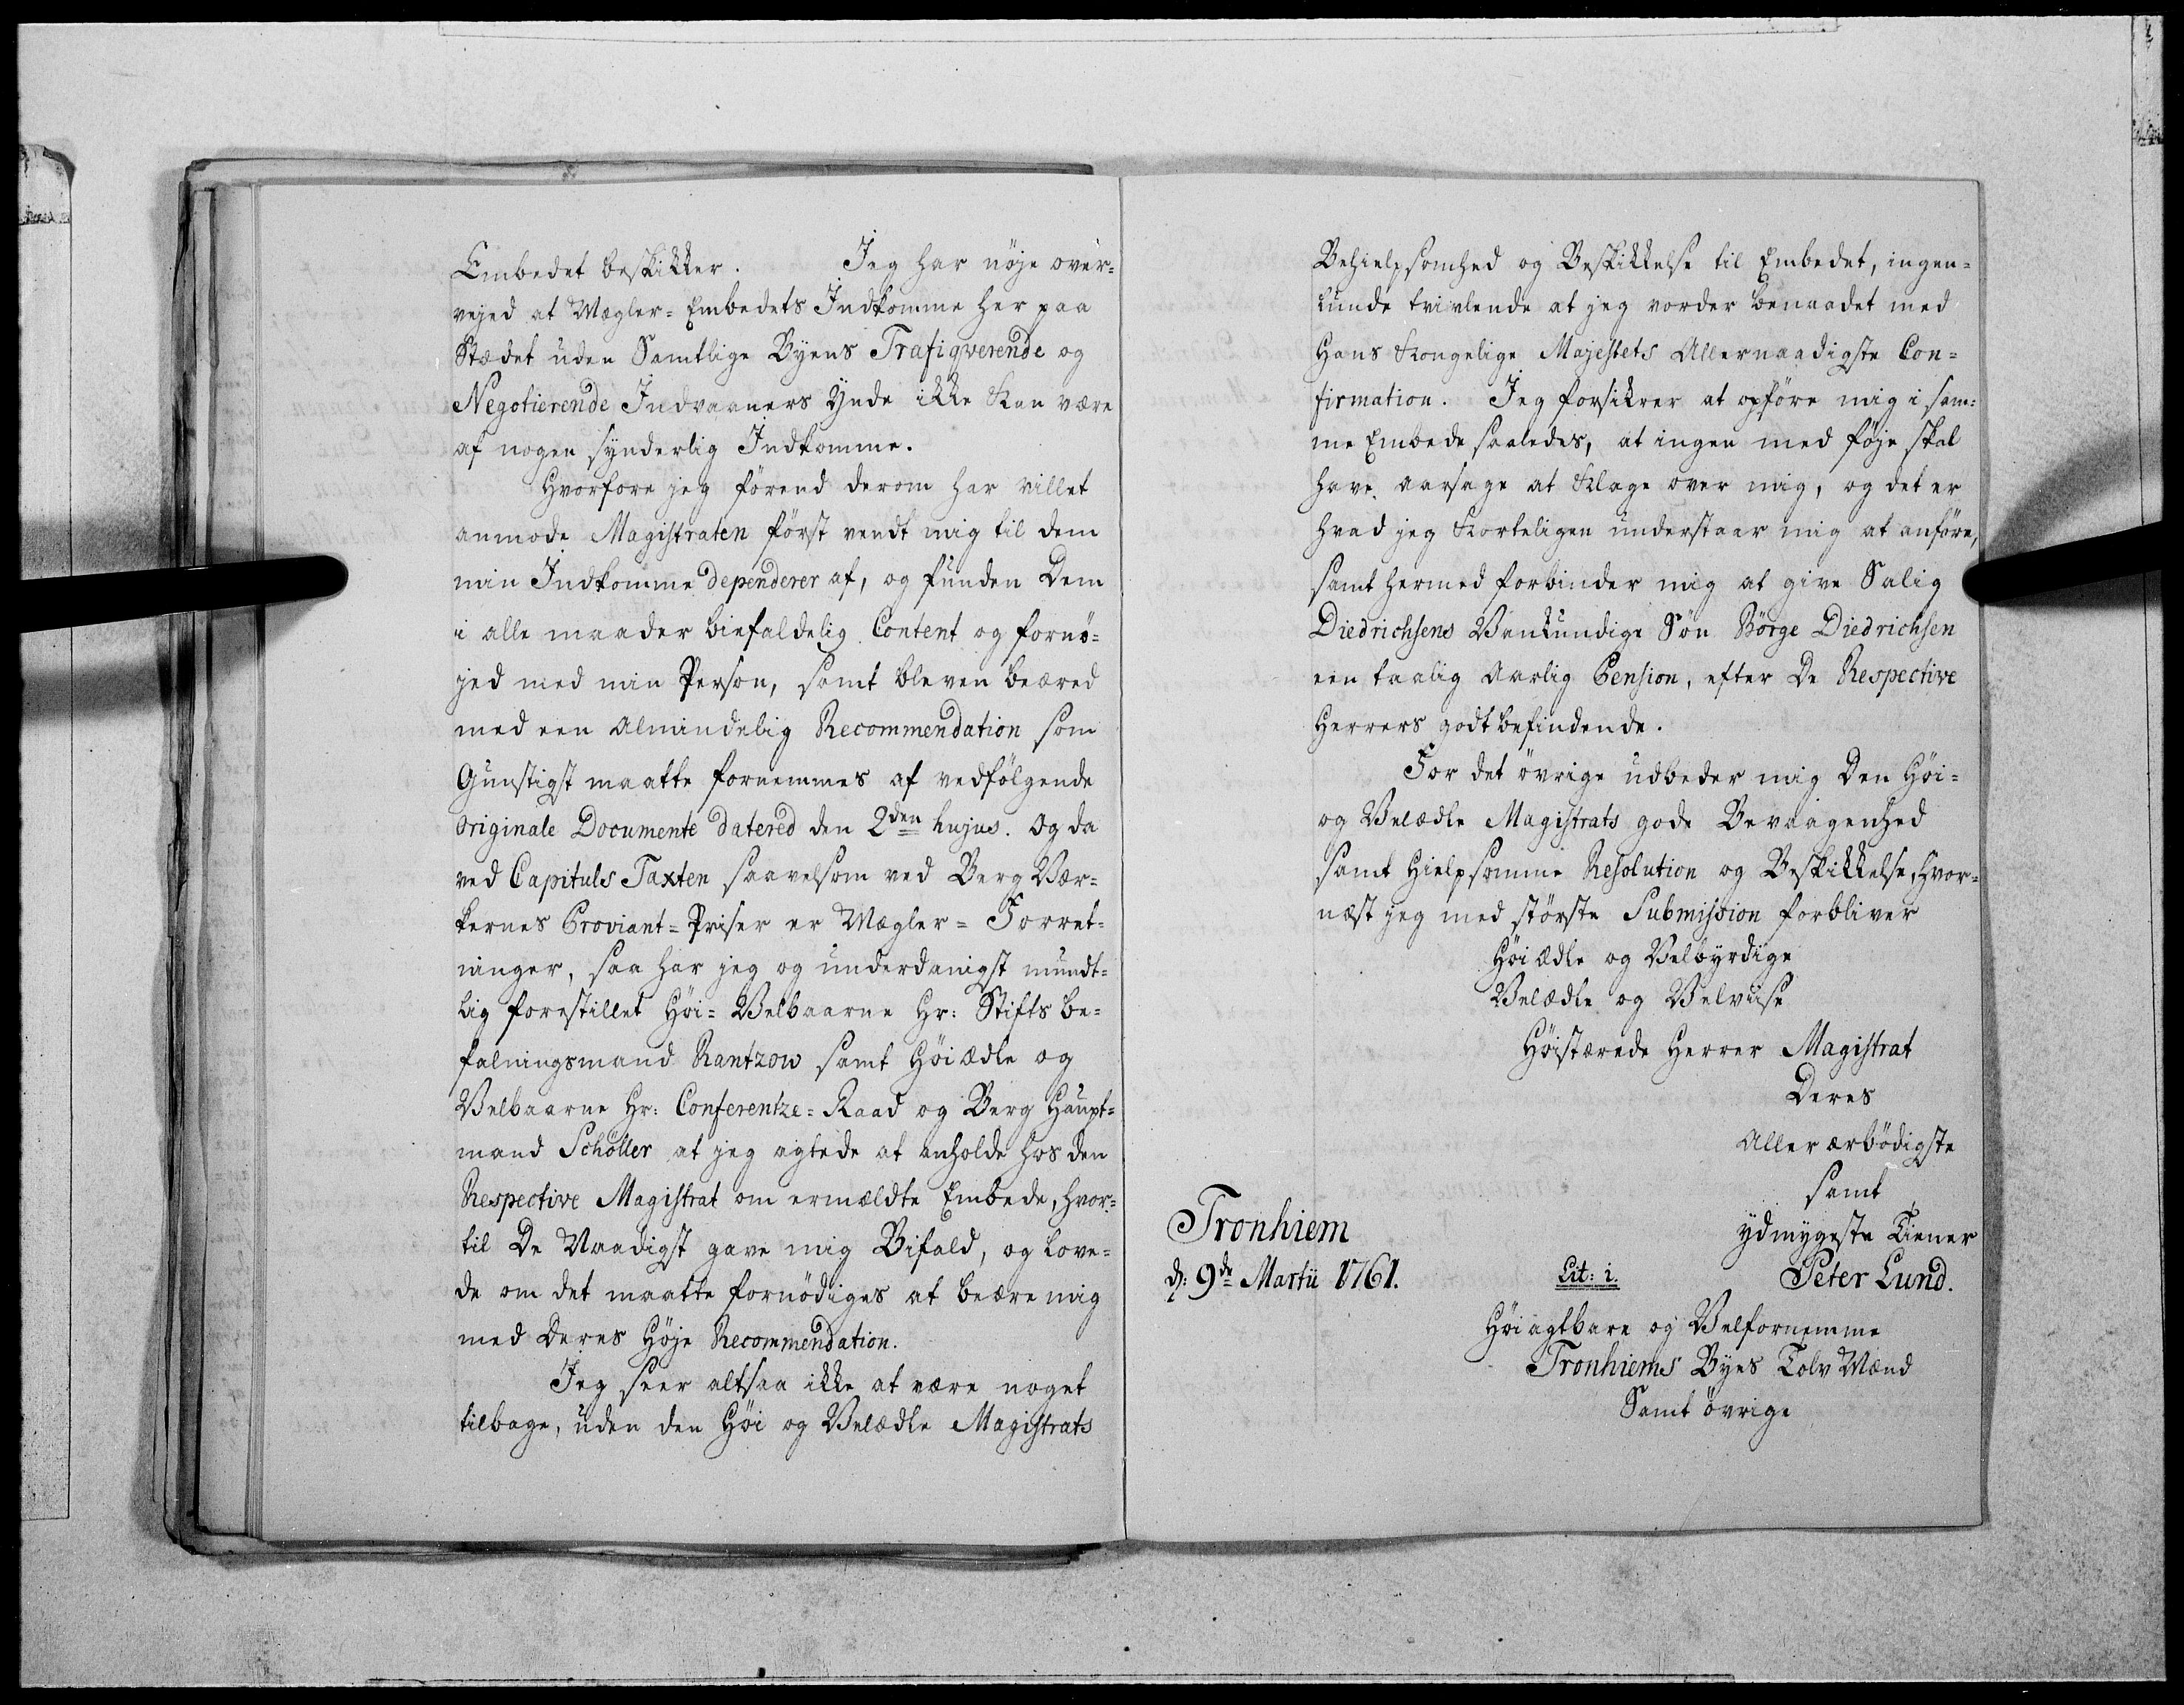 Embedet beskikker. Jeg har nøje over-
vejed at Mægler-Embedets Indkomme her paa
Stædet uden Samtlige Byens Trafiqverende og
Negotierende Indvaaners Ynde ikke kan være
af nogen synderlig Indkomme.
Hvorfore jeg förend derom har villet
anmode Magistraten först vendt mig til dem
min Indkomme dependerer af, og funden Dem
i alle maader biefaldelig Content og fornö-
jed med min Person, samt bleven beæred
med een Almindelig Recommendation som
Gunstigst maatte fornemmes af vedfölgende
originale Documente datered den 2den hujus. Og da
ved Capituls Taxten saavelsom ved Berg Vær-
kernes Proviant-Priser er Mægler-Forret-
ninger, saa har jeg og underdanigst mundt-
lig forestillet Höi-Velbaarne Hr: Stifts be-
falningsmand Rantzow samt Höiædle og
Velbaarne Hr: Conferentze-Raad og Berg Haupt-
mand Schöller at jeg agtede at anholde hos den
Respective Magistrat om ermældte Embede, hvor-
til De Naadigst gave mig Bifald, og love-
de om det maatte fornödiges at beære mig
med Deres Höje Recommendation.
Jeg seer altsaa ikke at være noget
tilbage, uden den Höi og Velædle Magistrats
Behielpsomhed og Beskikkelse til Embedet, ingen-
lunde tvivlende at jeg vorder benaadet med
Hans Kongelige Majestets Allernaadigste Con-
firmation. Jeg forsikrer at opföre mig i sam-
me Embede saaledes, at ingen med föje skal
have aarsage at Klage over mig, og det er
hvad jeg Korteligen understaar mig at anföre,
samt hermed forbinder mig at give Salig
Diedrichsens Vankundige Sön Börge Diedrichsen
een taalig Aarlig Pension, efter De Respective
Herrers godtbefindende.
For det övrige udbeder mig Den Höi-
og Velædle Magistrats gode Bevaagenhed
samt Hielpsomme Resolution og Beskikkelse, hvor-
næst jeg med störste Submission forbliver
Höiædle og Velbyrdige
Velædle og Velviise
Höistærede Herrer Magistrat
Deres
Allerærbödigste
samt
ydmygeste Tiener
Peter Lund.
Tronhiem
d: 9de Martii 1761.
Lit: i.
Höiagtbare og Velfornemme
Tronhiems Byes Tolv Mænd
Samt övrige